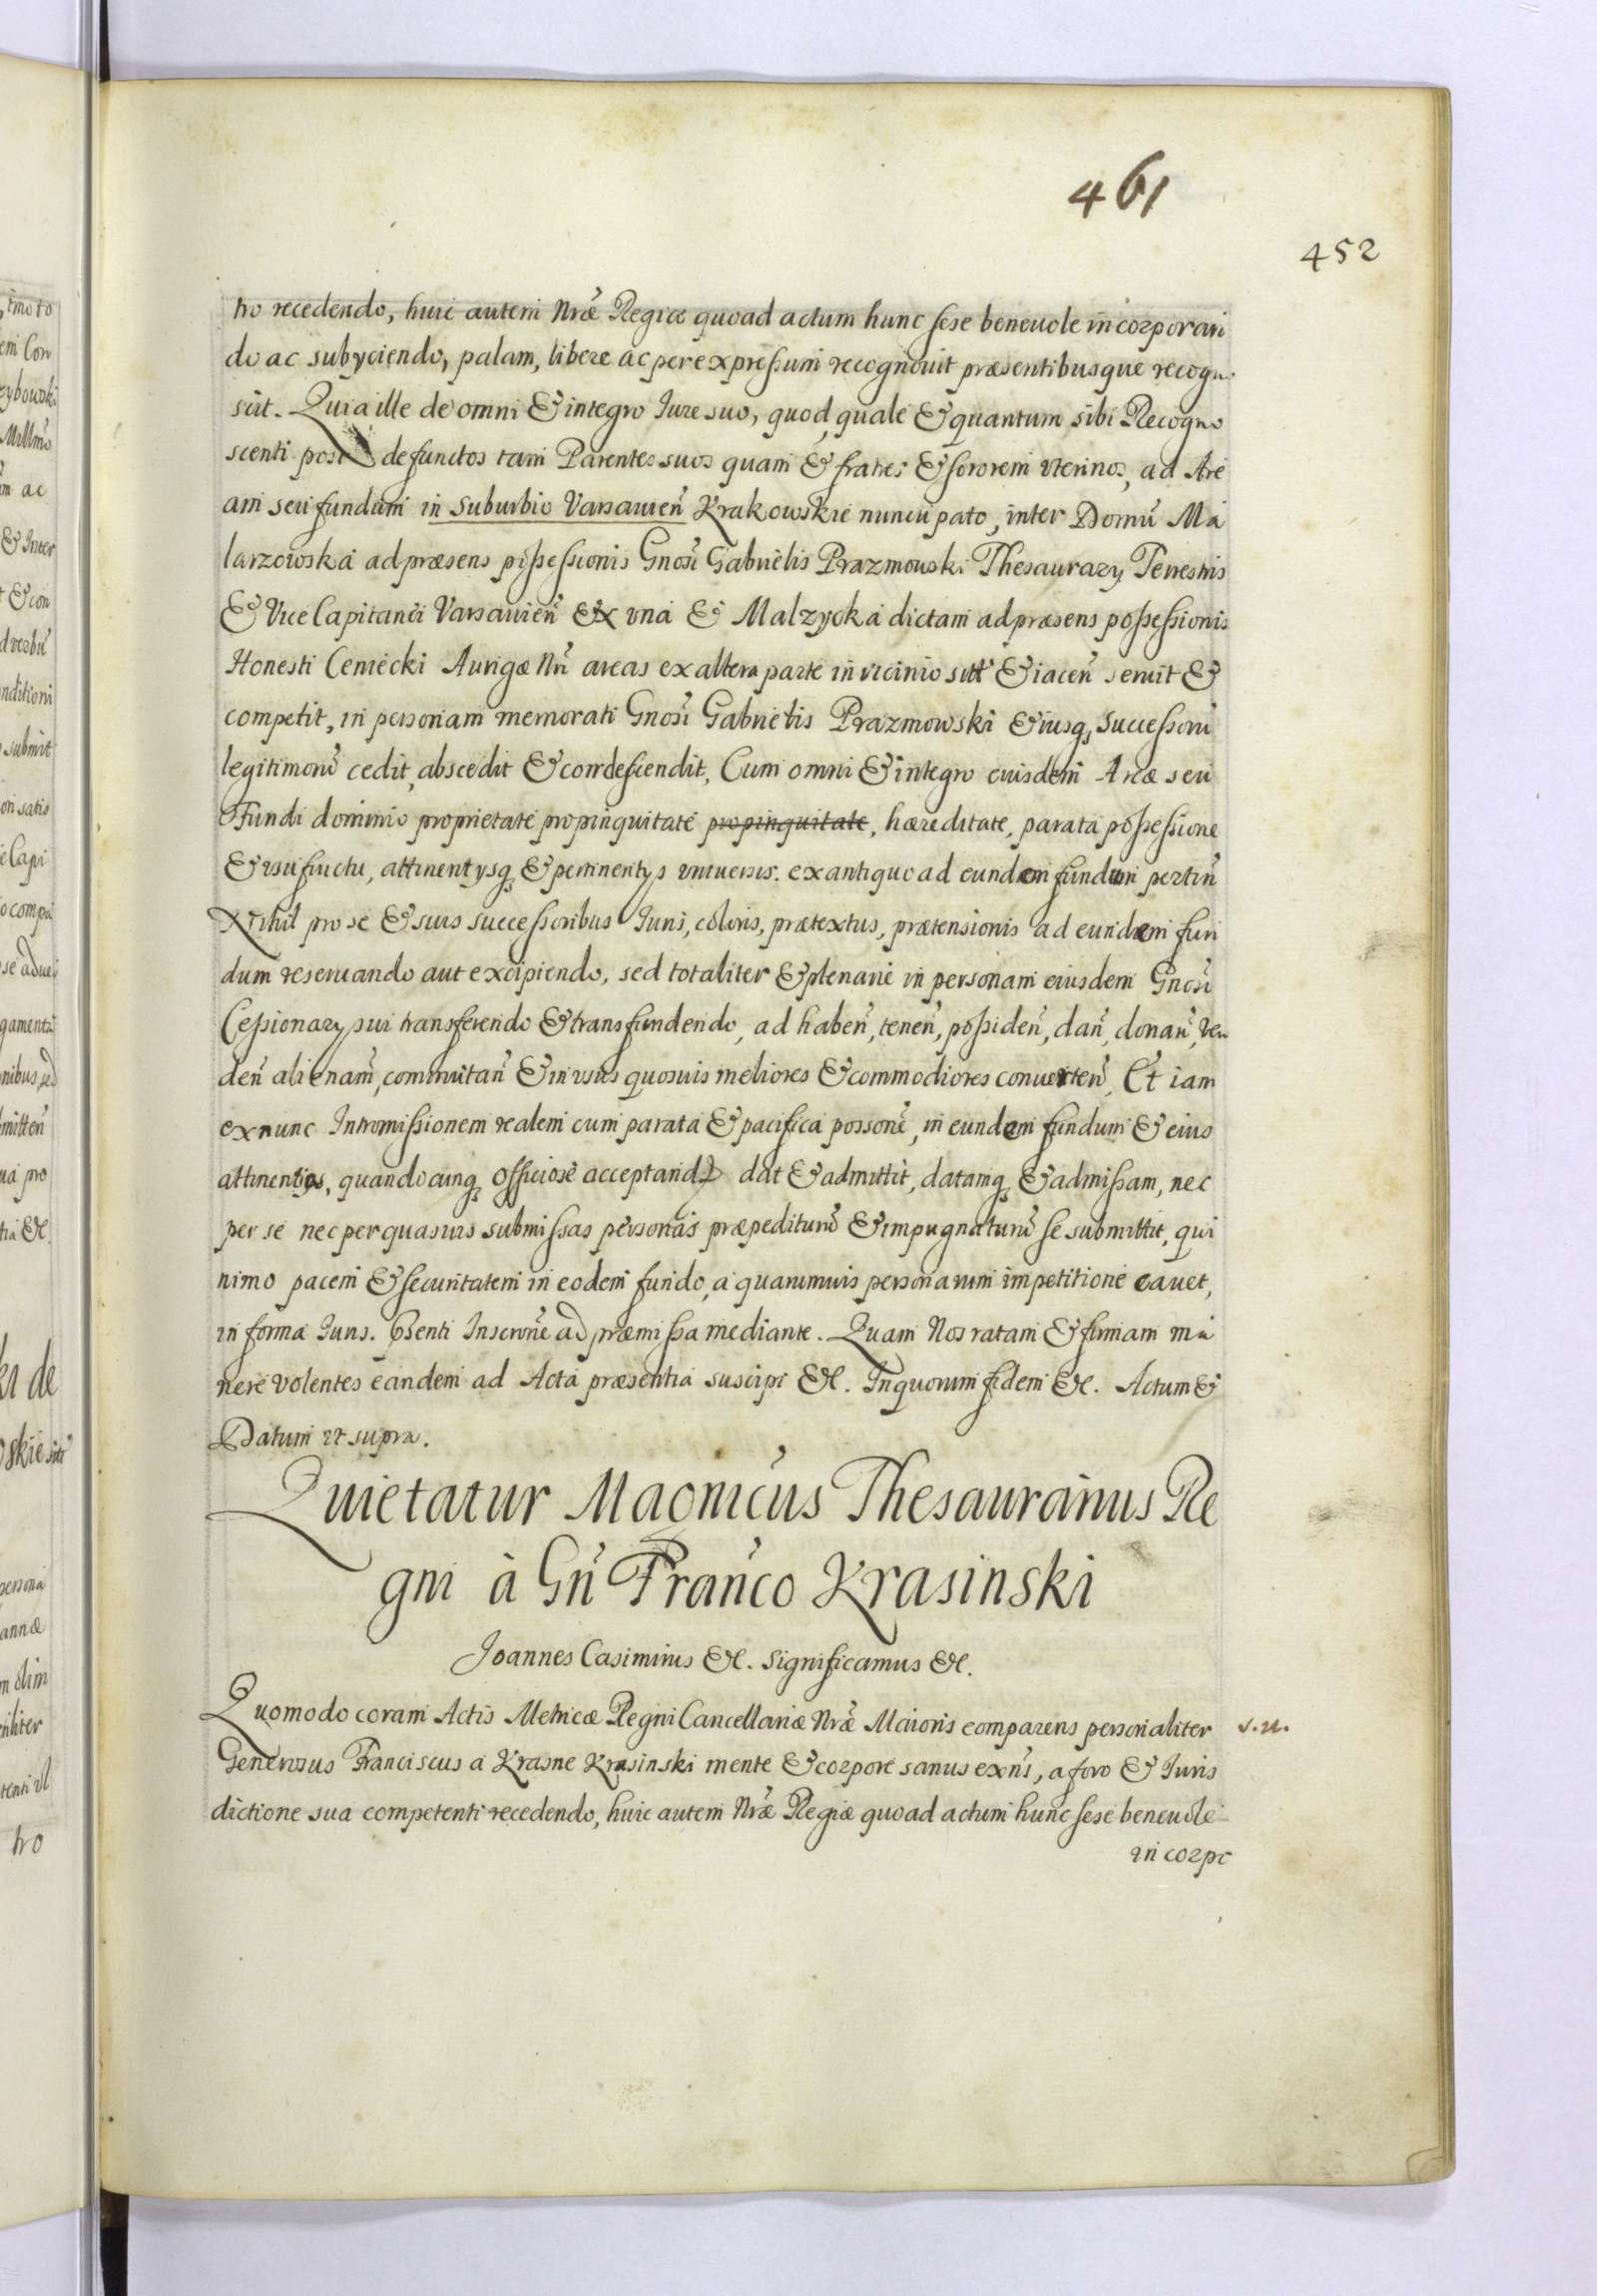 461
452
tro recedendo, huic autem Nræ Regiæ quoad actum hunc sese beneuole incorporan
do ac subyciendo, palam, libere ac per expressum recognouit præsentibusque recogn
scit. Quia ille de omni & integro Jure suo, quod, quale & quantum sibi Recogno
scenti post defunctos tam Parentes suos quam & fratres & sororem vterinos, ad Are
am seu fundum in Suburbio Varsauien Krakowskie nuncupato, inter Domũ Ma
larzowska ad præsens possessionis Gnosi Gabrielis Prazmowski Thesaurary Terrestris
& Vice Capitanei Varsauien ex vna & Malzycka dictam ad præsens possessionis
Honesti Ceniecki Aurigæ Nri areas ex altera parte in vicinio sitt & iacen seruit &
competit, in personam memorati Gnosi Gabrielis Prazmowski & iusq, Successorũ
legitimorũ cedit, abscedit & condescendit, Cum omni & integro eiusdem Areæ seu
Fundi dominio proprietate propinquitate propinquitate, hæreditate, parata possessione
& vsufructu, attinentysq & pertinentys vniuersis. ex antiquo ad eundem fundum pertiñ
Nihil pro se & suis successoribus Juris, coloris, prætextus, prætensionis ad eundem fun
dum reseruando aut excipiendo, sed totaliter & plenarie in personam eiusdem Gnosi
Cessionary sui transferendo & transfundendo, ad habeñ, teneñ, possideñ, dañ, donañ, ven
deñ alienam, commutañ & in vsus quosuis meliores & commodiores conuerteñ, Et iam
ex nunc Intromissionem realem cum parata & pacifica possone, in eundem fundum & eius
attinentias, quandocunq officiose acceptand dat & admittit, datamq & admissam, nec
per se nec per quasuis submissas personas præpediturũ & impugnaturũ se submittit, qui
nimo pacem & securitatem in eodem fundo, a quarumuis personarum impetitione cauet,
in forma Juris. Psenti Inscrone ad præmissa mediante. Quam Nos ratam & firmam ma
nere volentes eandem ad Acta præsentia suscipi &c. In quorum fidem &c. Actum &
Datum vt supra.
Quietatur Magnicus Thesaurarius Re
gni à Gñ Franco Krasinski
Joannes Casimirus &c. Significamus &c.
Quomodo coram Actis Metricæ Regni Cancellariæ Nræ Maioris comparens personaliter
s.n.
Generosus Franciscus a Krasne Krasinski mente & corpore sanus exñs, a foro & Juris
dictione sua competenti recedendo, huic autem Nræ Regiæ quoad actum hunc sese beneuole
in corpo